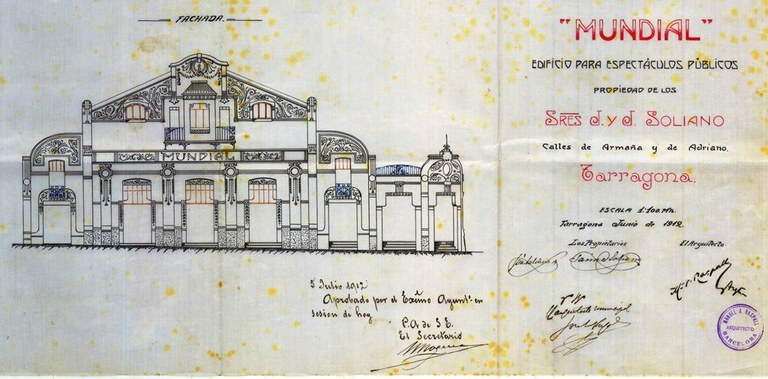 FACHADA.
MUNDIAL
5 Julio 1912
Aprobado por el Exc̃mo Ayunt.º en
sesion de hoy
P. A. de S. E.
El Secretario
"MUNDIAL"
EDIFICIO PARA ESPECTÁCULOS PÚBLICOS
PROPIEDAD DE LOS
SRES J. Y J. SOLIANO
Calles de Armañá y de Adriano.
Tarragona.
ESCALA 1:100 M.
Tarragona Junio de 1912
Los Propietarios El Arquitecto
Vº Bº
MANUEL J. RASPALL
ARQUITECTO
BARCELONA